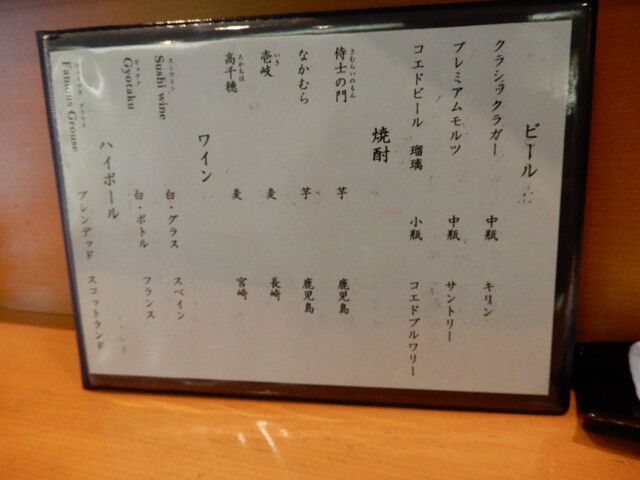 ビール
クラシックラガー 中瓶 キリン
プレミアムモルツ 中瓶 サントリー
コエドビール 瑠璃 小瓶 コエドブルワリー
焼酎
さむらいのもん
侍士の門 芋 鹿児島
なかむら 芋 鹿児島
いき
壱岐 麦 長崎
たかちほ
高千穂 麦 宮崎
ワイン
スシワイン
Sushi wine 白・グラス スペイン
ギョタク
Gyotaku 白・ボトル フランス
ハイボール
Famous Grouse ブレンデッド スコットランド